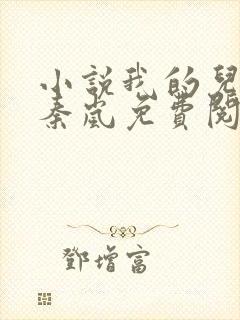 小說我的兒
秦嵐免費閱
鄧增富